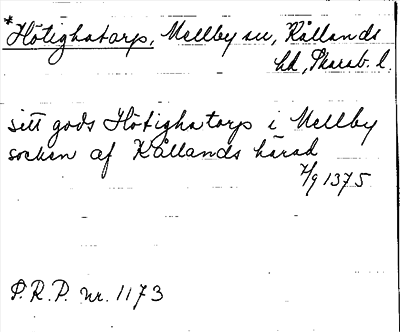 *Hötighatorp, Mellby sn, Kållands
hd, Skarab. l.
sitt gods Hötighatorp i Mellby
socken af Kållands härad
7/9 1375
P.R.P. nr. 1173